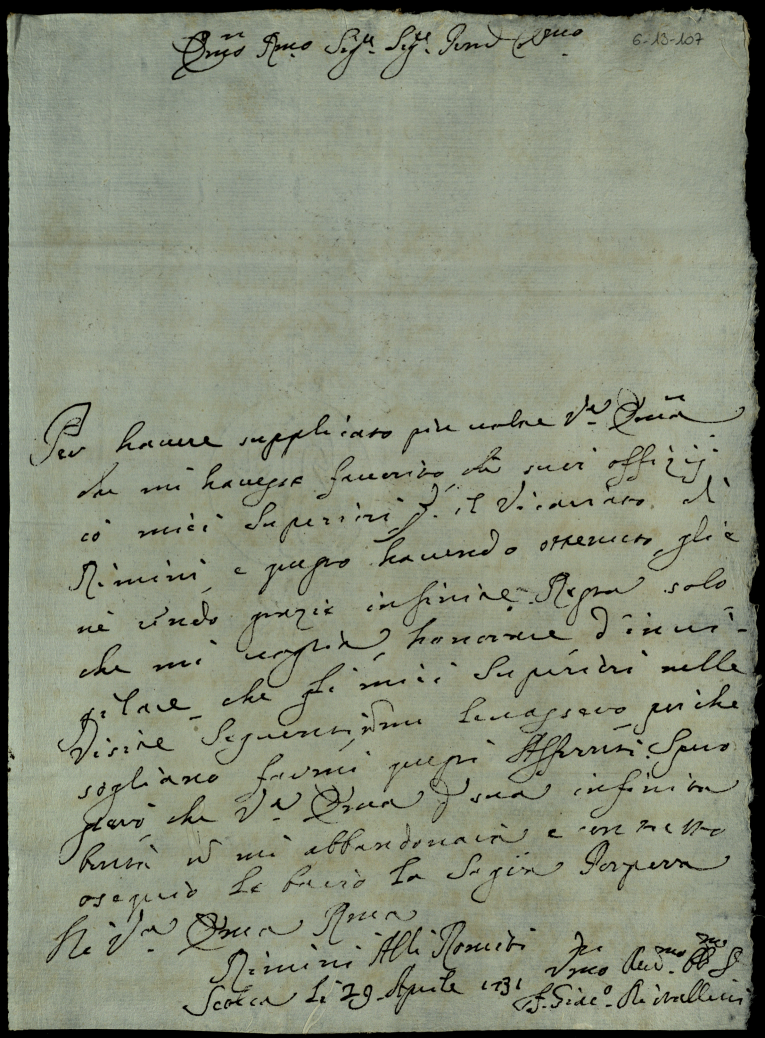 Em̃o Rmo Sig.re Sig.re Pnd Colmo
6-13-107
Per havere supplicato più volte V.a Em̃a
che mi havesse favorito di suoi offizij
cò miei Superiori p. il Vicariato di
Rimini, e questo havendo ottenuto, glie
nè rendo grazie infinite. Resta solo
che mi voglia honorare d'invi-
gilare che gli miei Superiori nelle
Visite seguenti nõ mi levassero, poiche
sogliano farmi questi Affronti. Spero
però che V.a Em̃a p sua infinita
bontà nõ mi abbandonarà e con tutto
osequio le bacio la Sagra Porpora
Di V.a Em̃a Rma
Rimini Alli Romiti
Scolca li 29 Aprile 1731
Vmo Devmo Obb S
F. Giac.o Rivallini